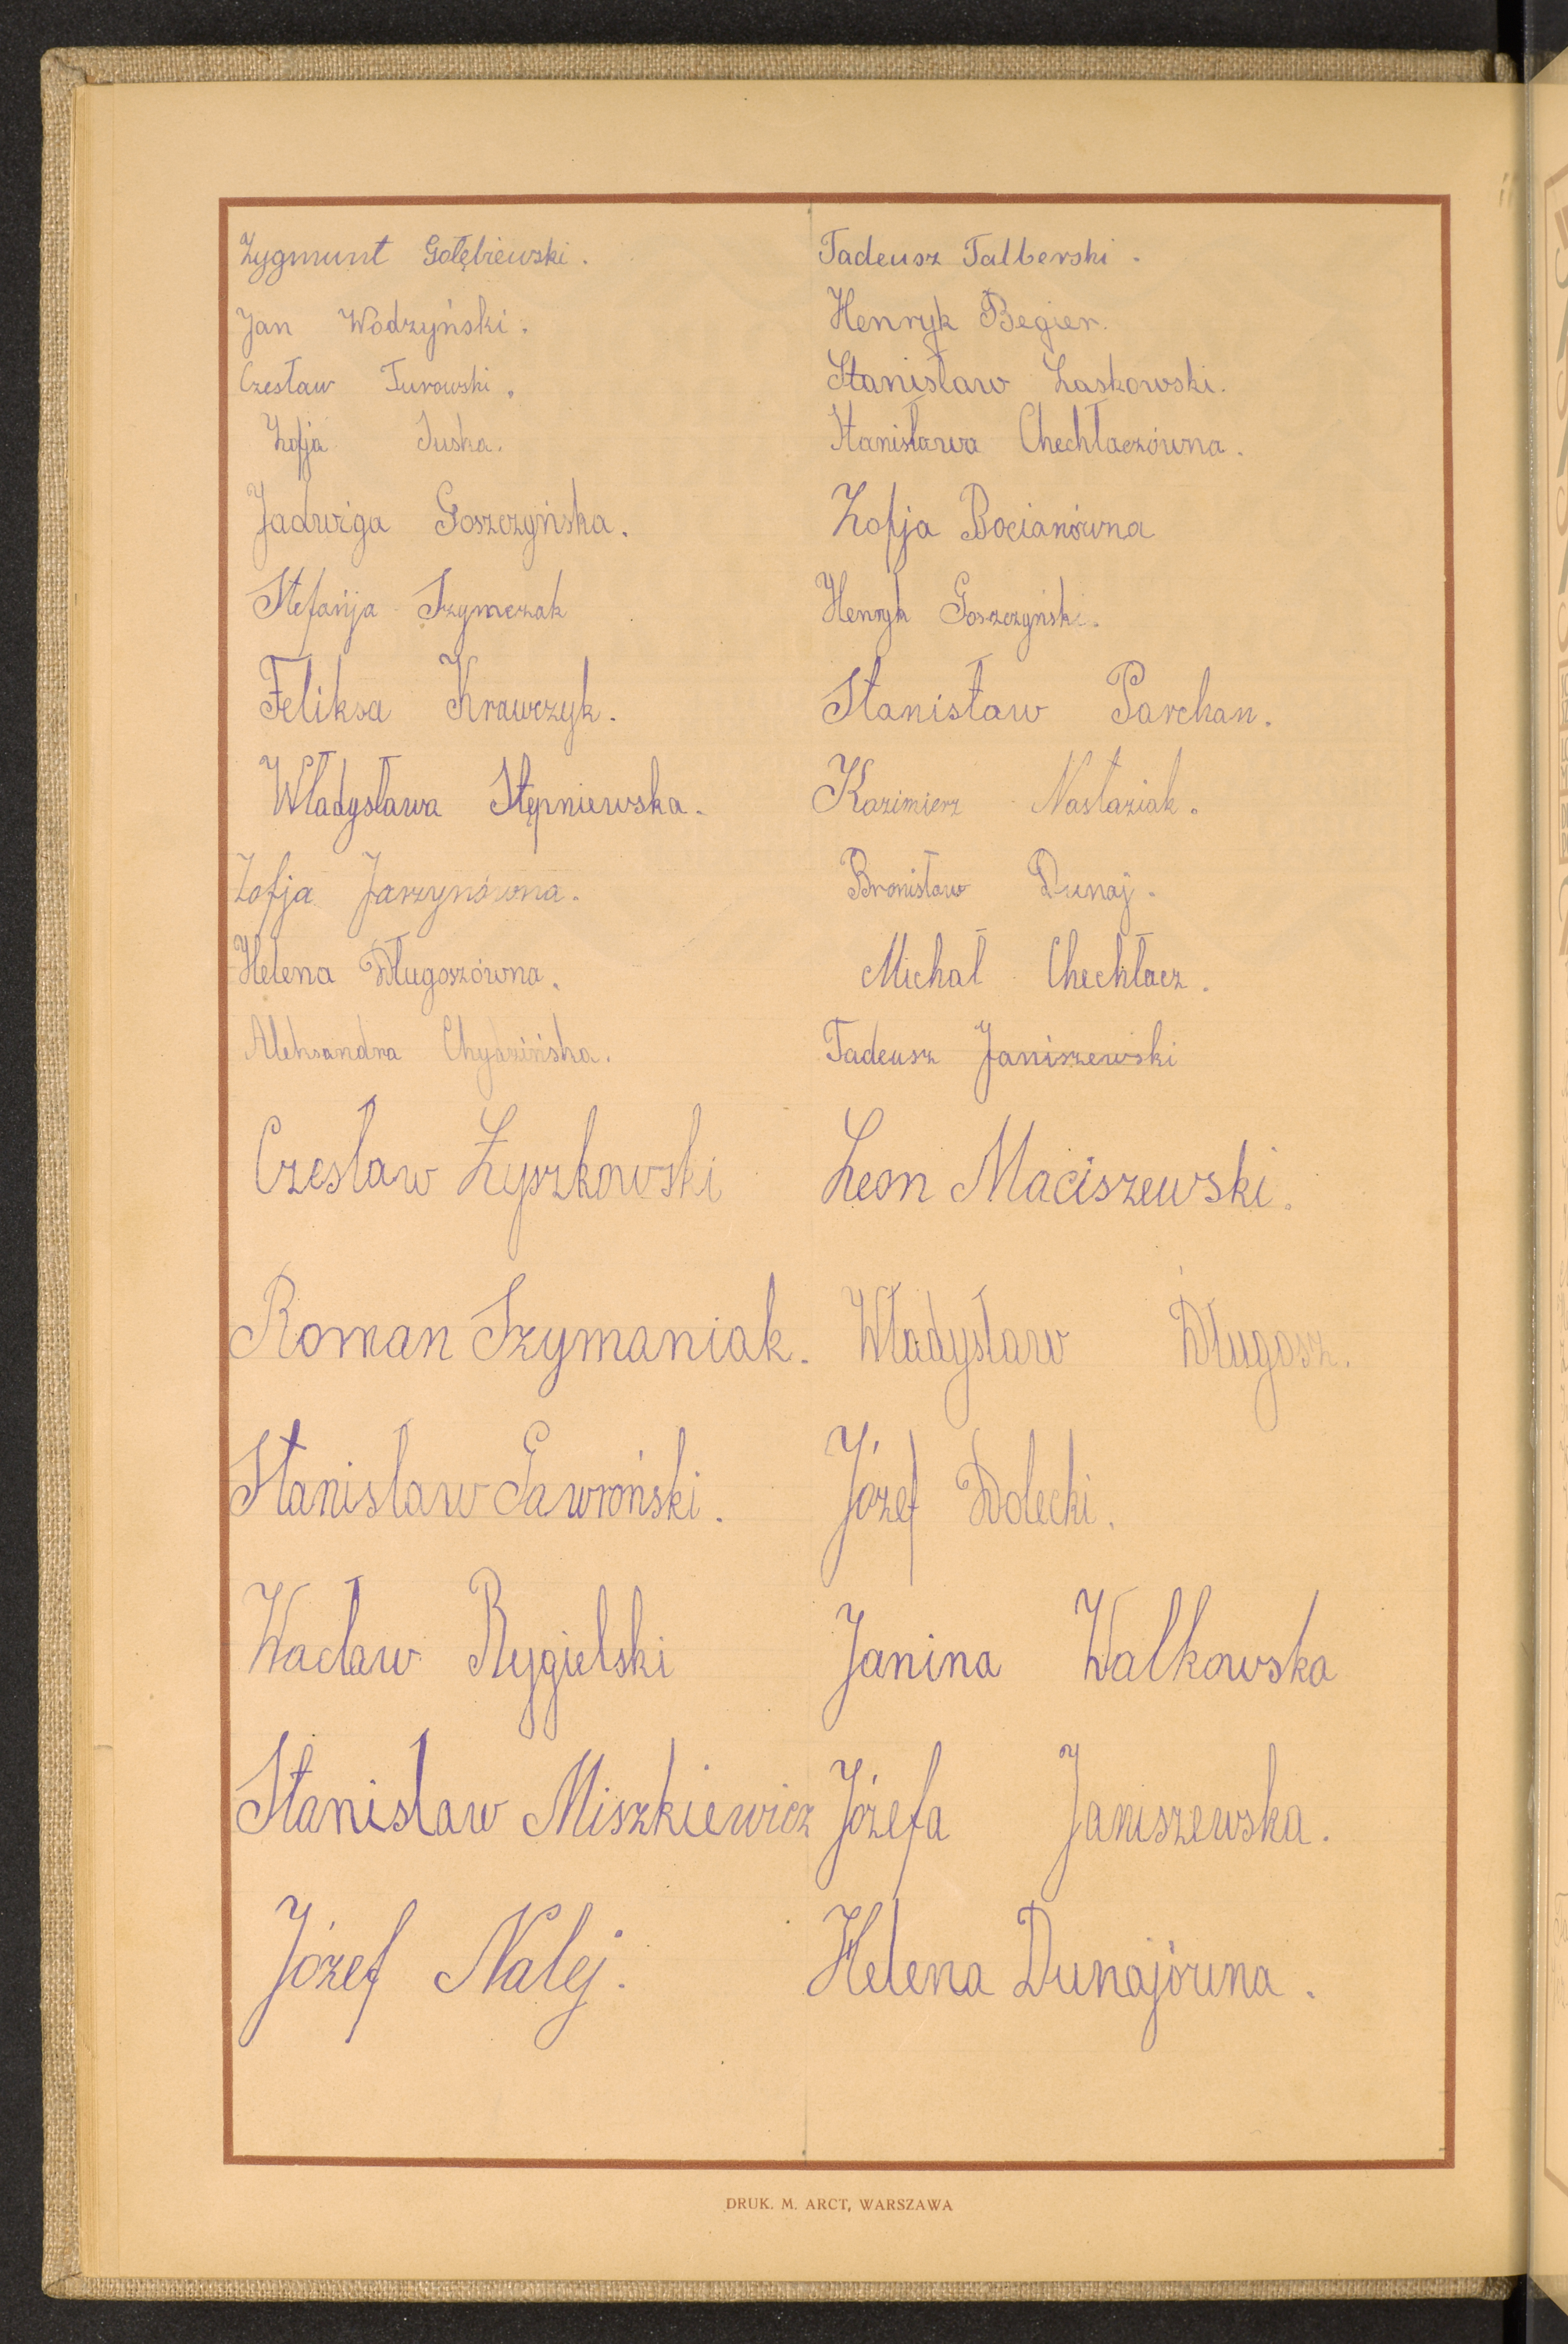 Zygmunt Gołębiewski.
Jan Wodzyński.
Czesław Turowski.
Zofja Suska.
Jadwiga Goszczyńska.
Stefańja Szymczak
Feliksa Krawczyk.
Władysława Stępniewska.
Zofja Jarzynówna.
Helena Długoszówna.
Aleksandra Chydzińska.
Czesław Żyszkowski
Roman Szymaniak.
Stanisław Gawroński.
Wacław Rygielski
Stanisław Miszkiewicz
Józef Nalej.
Tadeusz Talberski.
Henryk Begier.
Stanisław Laskowski.
Stanisława Chechłaczówna.
Zofja Bocianówna
Henryk Goszczyński.
Stanisław Parchan.
Kazimierz Nastaziak.
Bronisław Dunaj.
Michał Chechłacz.
Tadeusz Janiszewski
Leon Maciszewski.
Władysław Długosz.
Józef Dolecki.
Janina Walkowska
Józefa Janiszewska.
Helena Dunajówna.
DRUK. M. ARCT, WARSZAWA